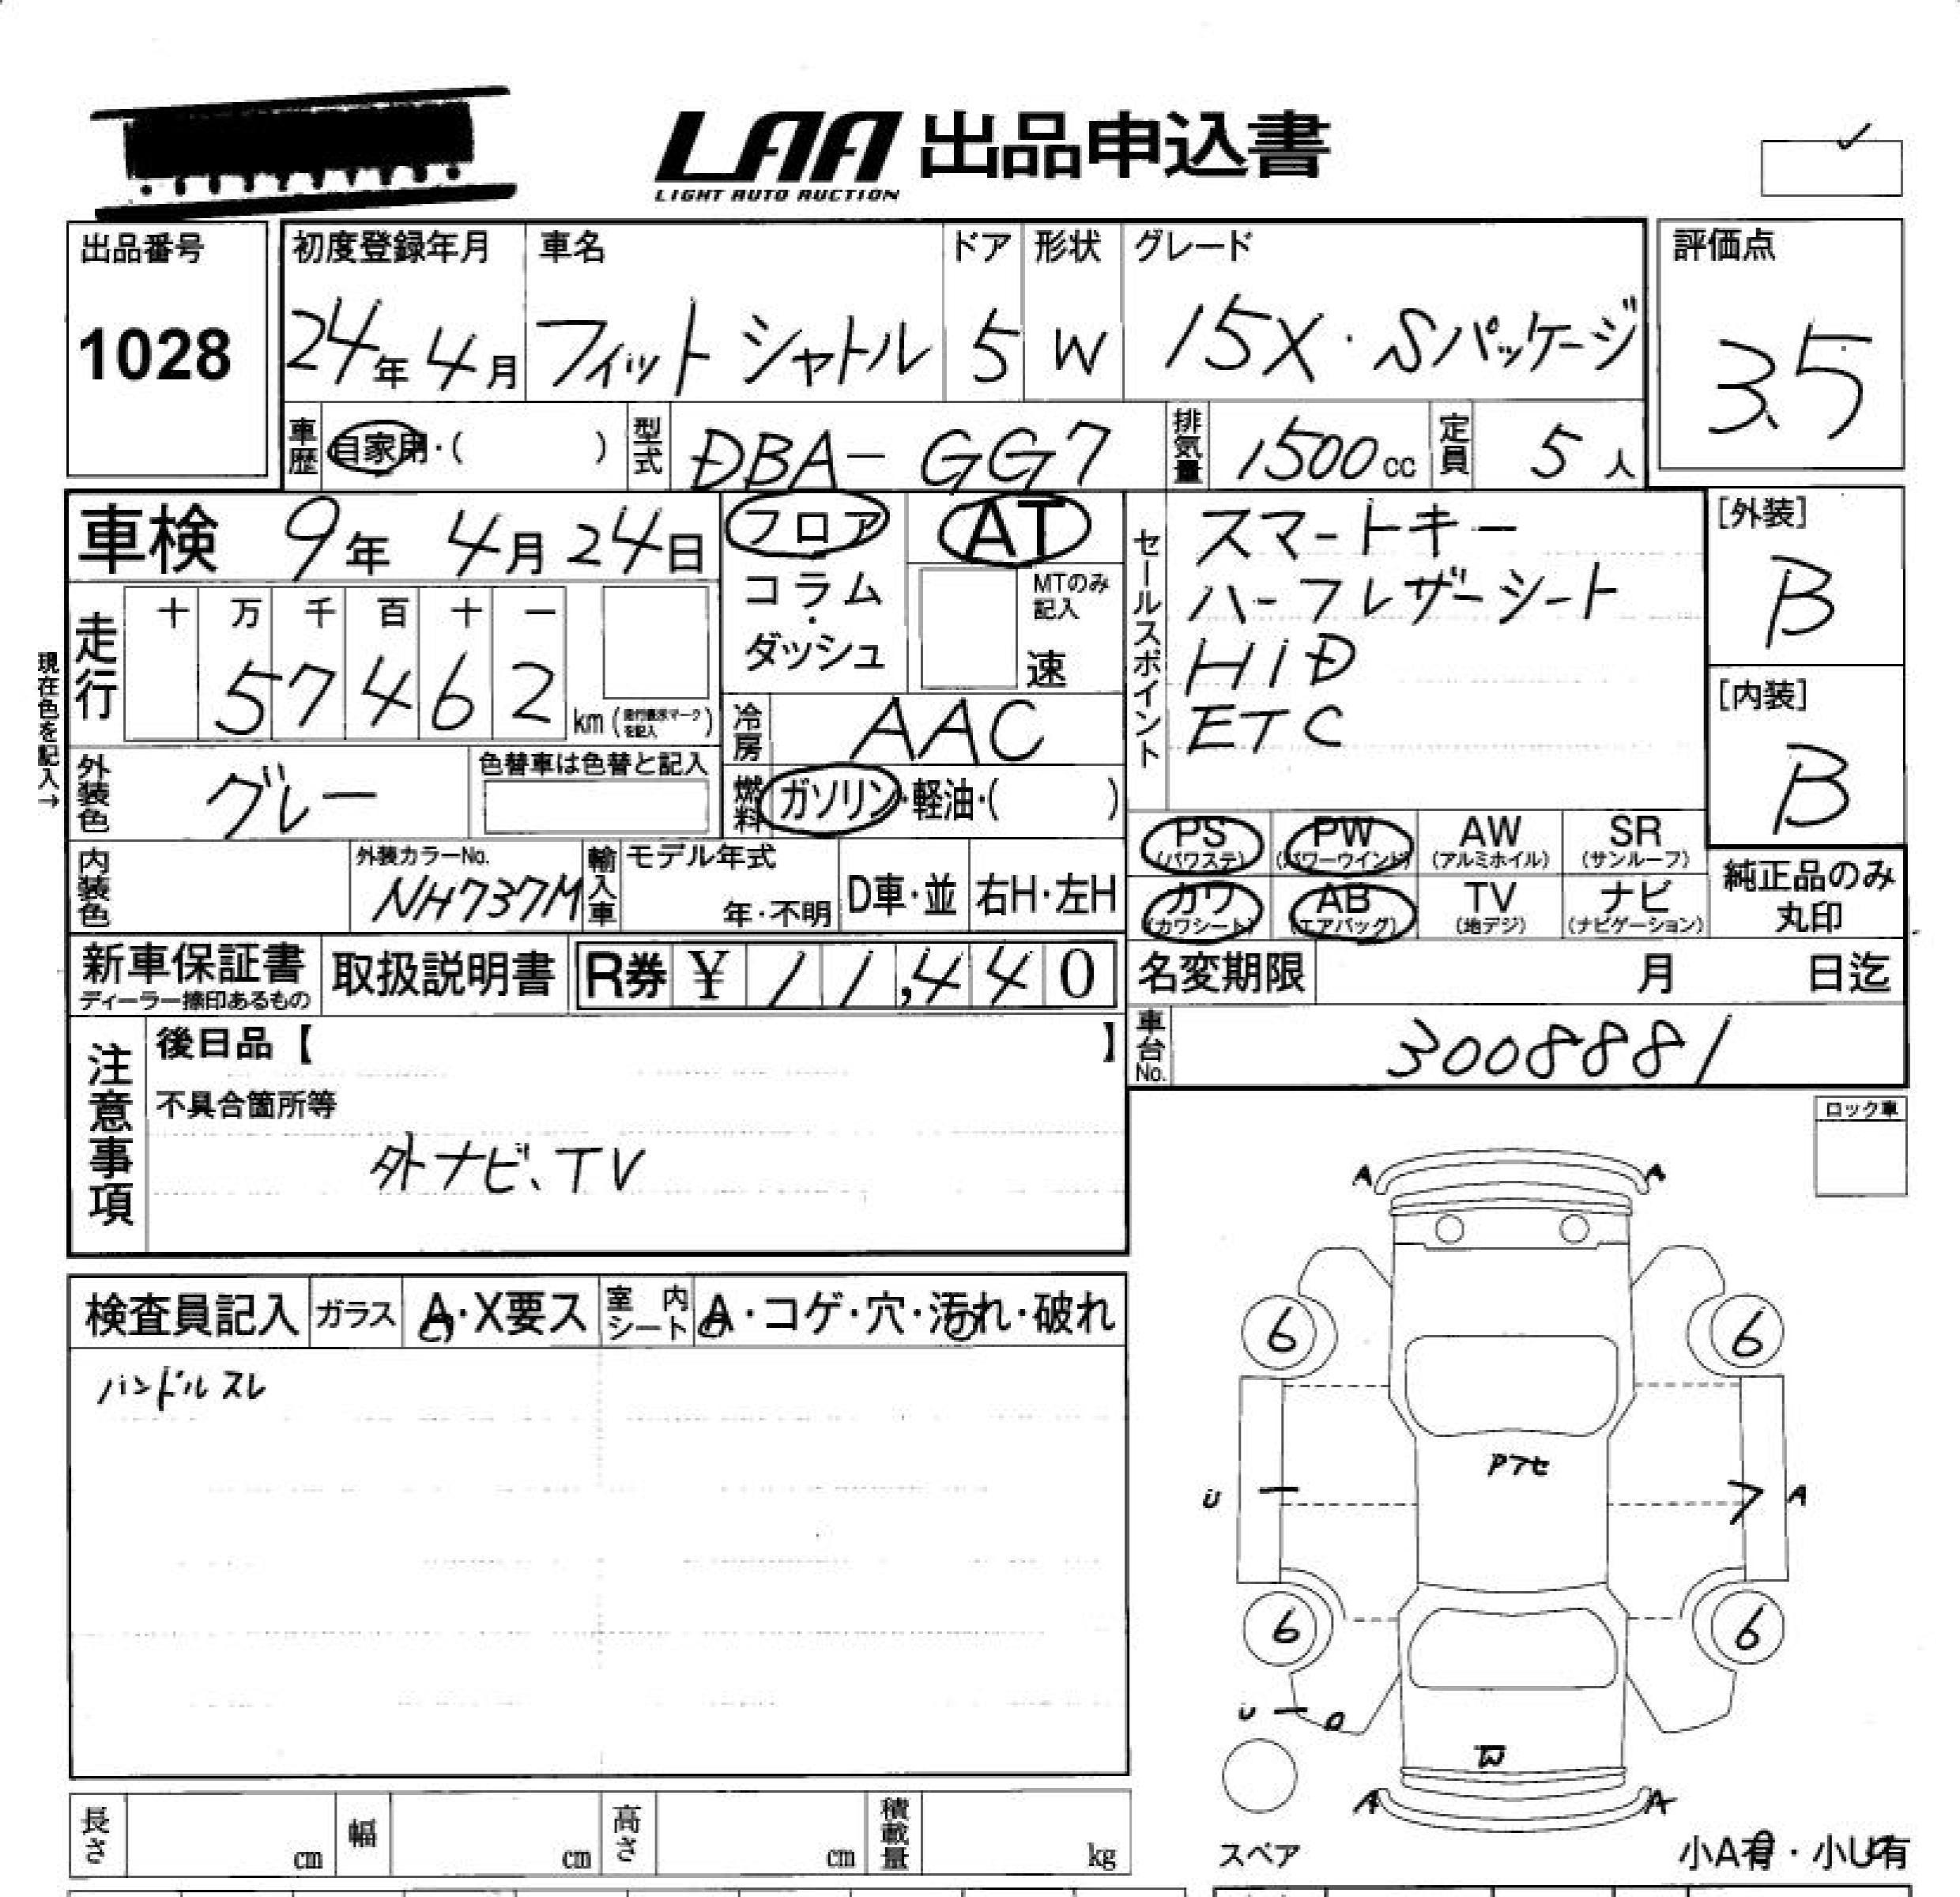 LAA 出品申込書
LIGHT AUTO AUCTION
出品番号
1028
初度登録年月
24年 4月
車名
フィット シャトル
ドア
5
形状
W
グレード
15X・Sパッケージ
評価点
3.5
車歴 自家用・( )
型式 DBA-GG7
排気量 1500cc
定員 5人
車検 9年 4月 24日
フロア
コラム
・
ダッシュ
AT
MTのみ
記入
速
セールスポイント
スマートキー
ハーフレザーシート
HID
ETC
[外装]
B
[内装]
B
現在色を記入→
走行
十 万 千 百 十 一
5 7 4 6 2 km
冷房 AAC
外装色 グレー
色替車は色替と記入
燃料 ガソリン・軽油・( )
PS AW SR PW
(パワステ) (パワーウインド) (アルミホイル) (サンルーフ)
カワ AB TV ナビ
(カワシート) (エアバッグ) (地デジ) (ナビゲーション)
純正品のみ
丸印
内装色
外装カラーNo.
NH737M
輸入車
モデル年式
年・不明
D車・並
右H・左H
新車保証書
ディーラー捺印あるもの
取扱説明書
R券 ¥ 11,440
名変期限 月 日迄
車台No. 3008881
注意事項
後日品【 】
不具合箇所等
外ナビ、TV
ロック車
検査員記入
ガラス A・X要ス
室内シート A・コゲ・穴・汚れ・破れ
ハンドルスレ
A A
6 6
Pアセ
U A
6 6
U
W
A A
スペア
小A有・小U有
長さ cm
幅 cm
高さ cm
積載量 kg